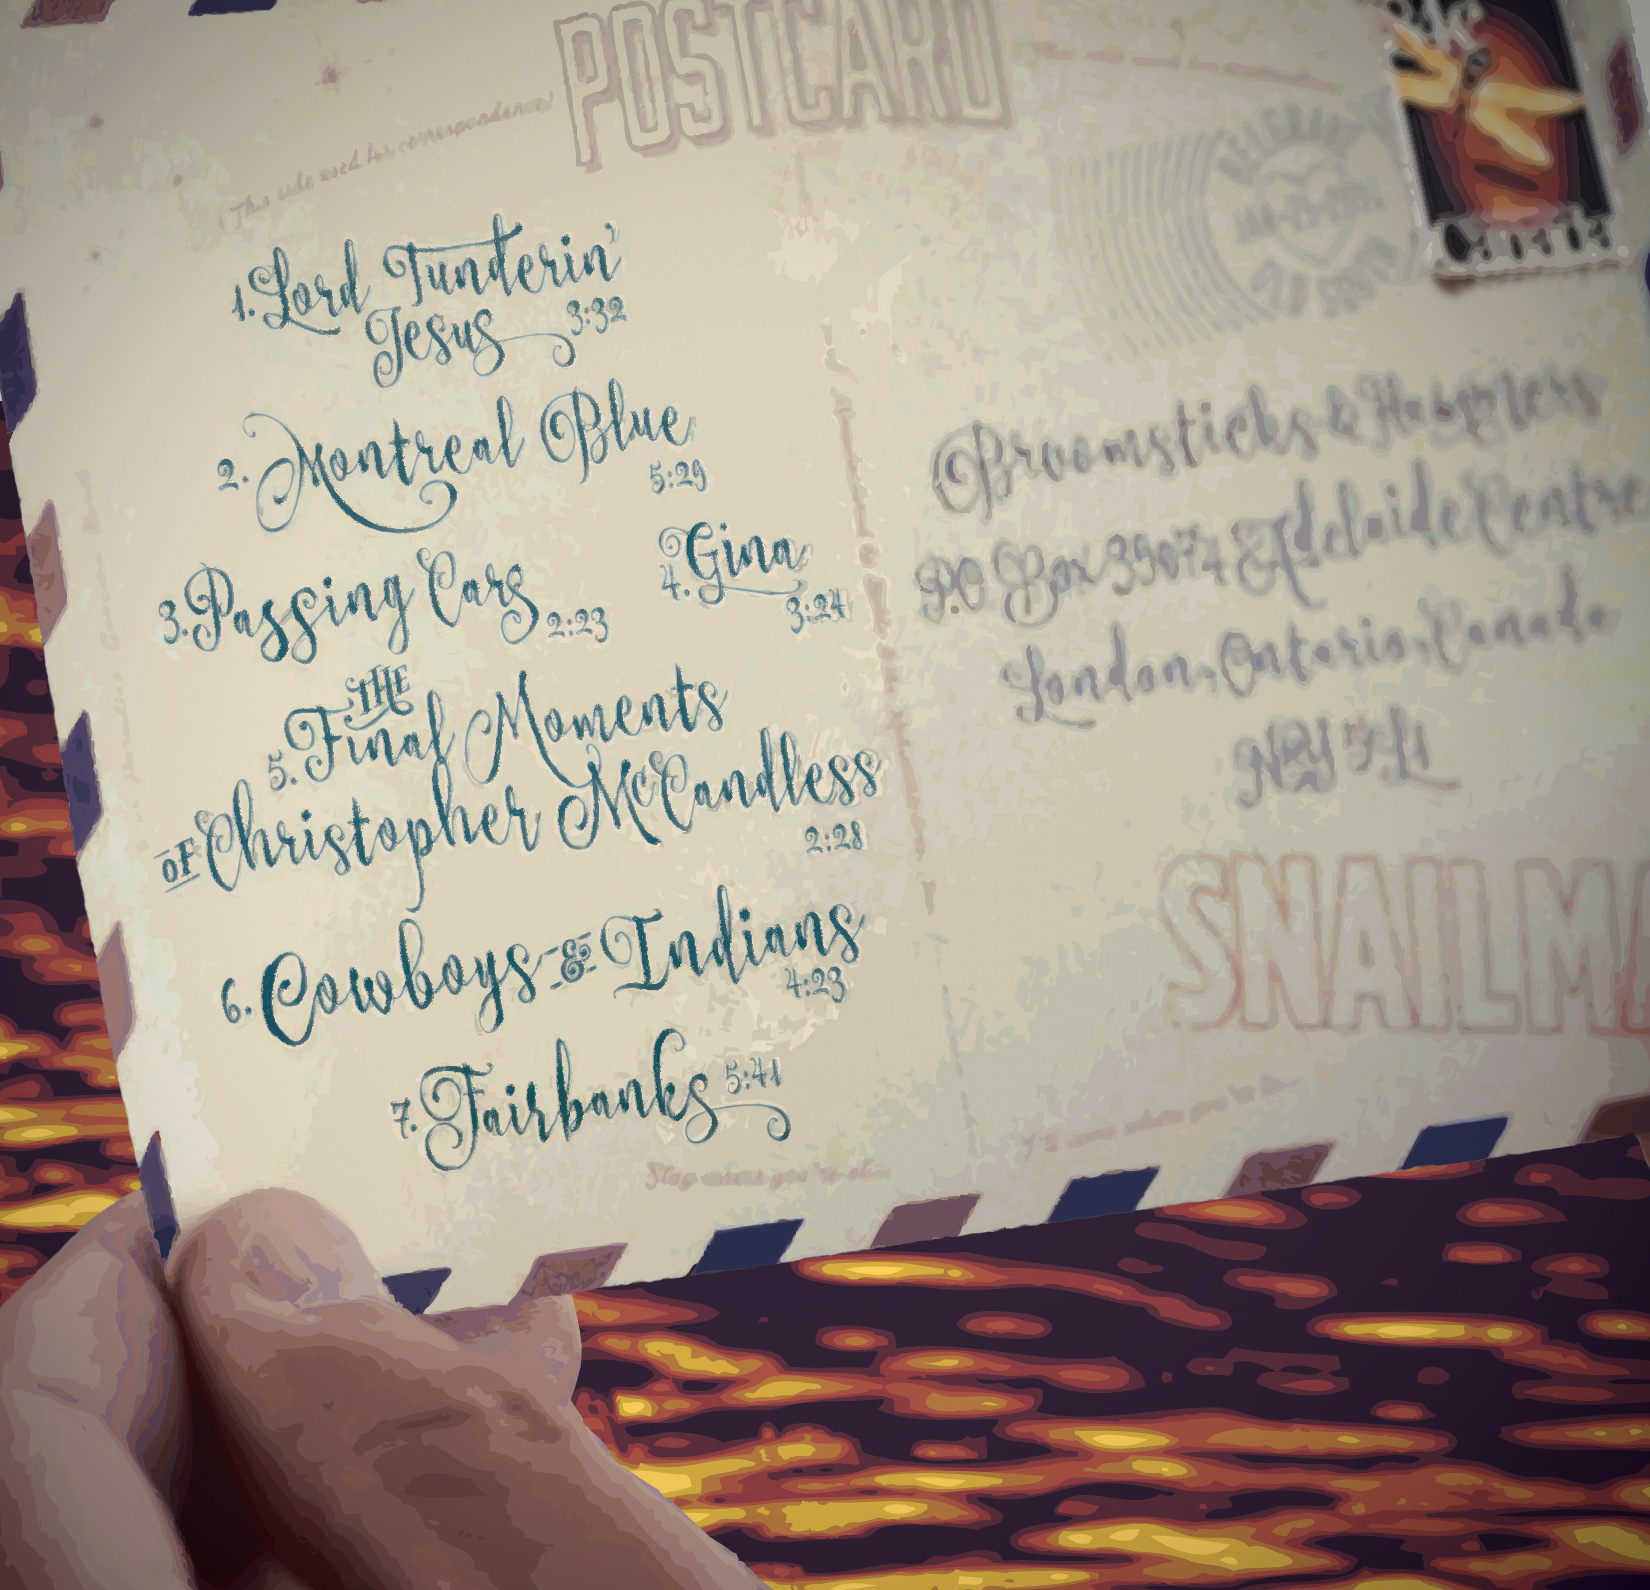 POSTCARD
(This side used for correspondence)
1. Lord Tunderin'
Jesus 3:32
2. Montreal Blue
5:29
3. Passing Cars 2:23
4. Gina
3:24
5. THE Final Moments
OF Christopher McCandless
2:28
6. Cowboys & Indians
4:23
7. Fairbanks 5:41
Broomsticks &
P.O Box 39074 Adelaide Centre
London, Ontario, Canada
SNAILMA